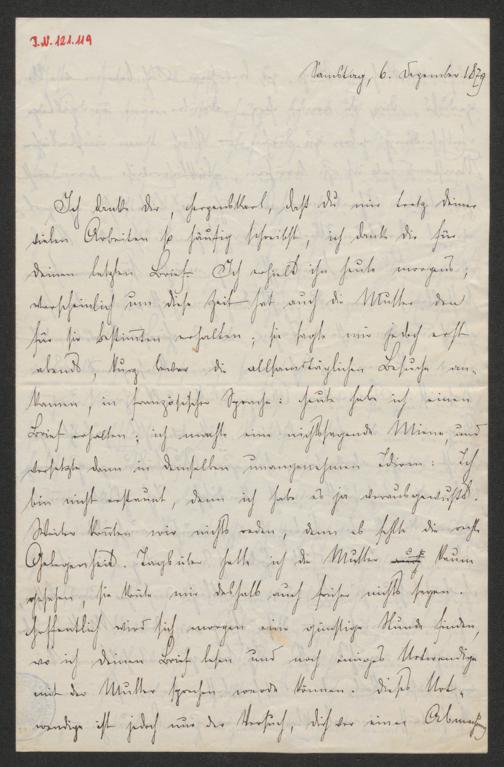 I.N. 121.119
Samstag, 6. Dezember 1879
Ich danke dir, Herzenskarl, daß du mir trotz deiner
vielen Arbeiten so häufig schreibst, ich danke dir für
deinen letzten Brief. Ich erhielt ihn heute morgens;
wahrscheinlich um diese Zeit hat auch die Mutter den
für sie bestimmten erhalten; sie sagte mir jedoch erst
abends, kurz bevor die allsamstäglichen Besuche an-
kamen, in französischer Sprache: heute habe ich einen
Brief erhalten; ich machte eine nichtssagende Miene, und
versetzte dann in demselben unangenehmen Idiom: Ich
bin nicht erstaunt, denn ich habe es ja vorausgewußt.
Weiter konnten wir nichts reden, denn es fehlte die rechte
Gelegenheit. Tagsüber hatte ich die Mutter kaum
gesehen, sie konnte mir deshalb auch früher nichts sagen.
Hoffentlich wird sich morgen eine günstige Stunde finden,
wo ich deinen Brief lesen und noch einiges Notwendige
mit der Mutter sprechen werde können. Dieses Not-
wendige ist jedoch nur der Versuch, dich vor einer